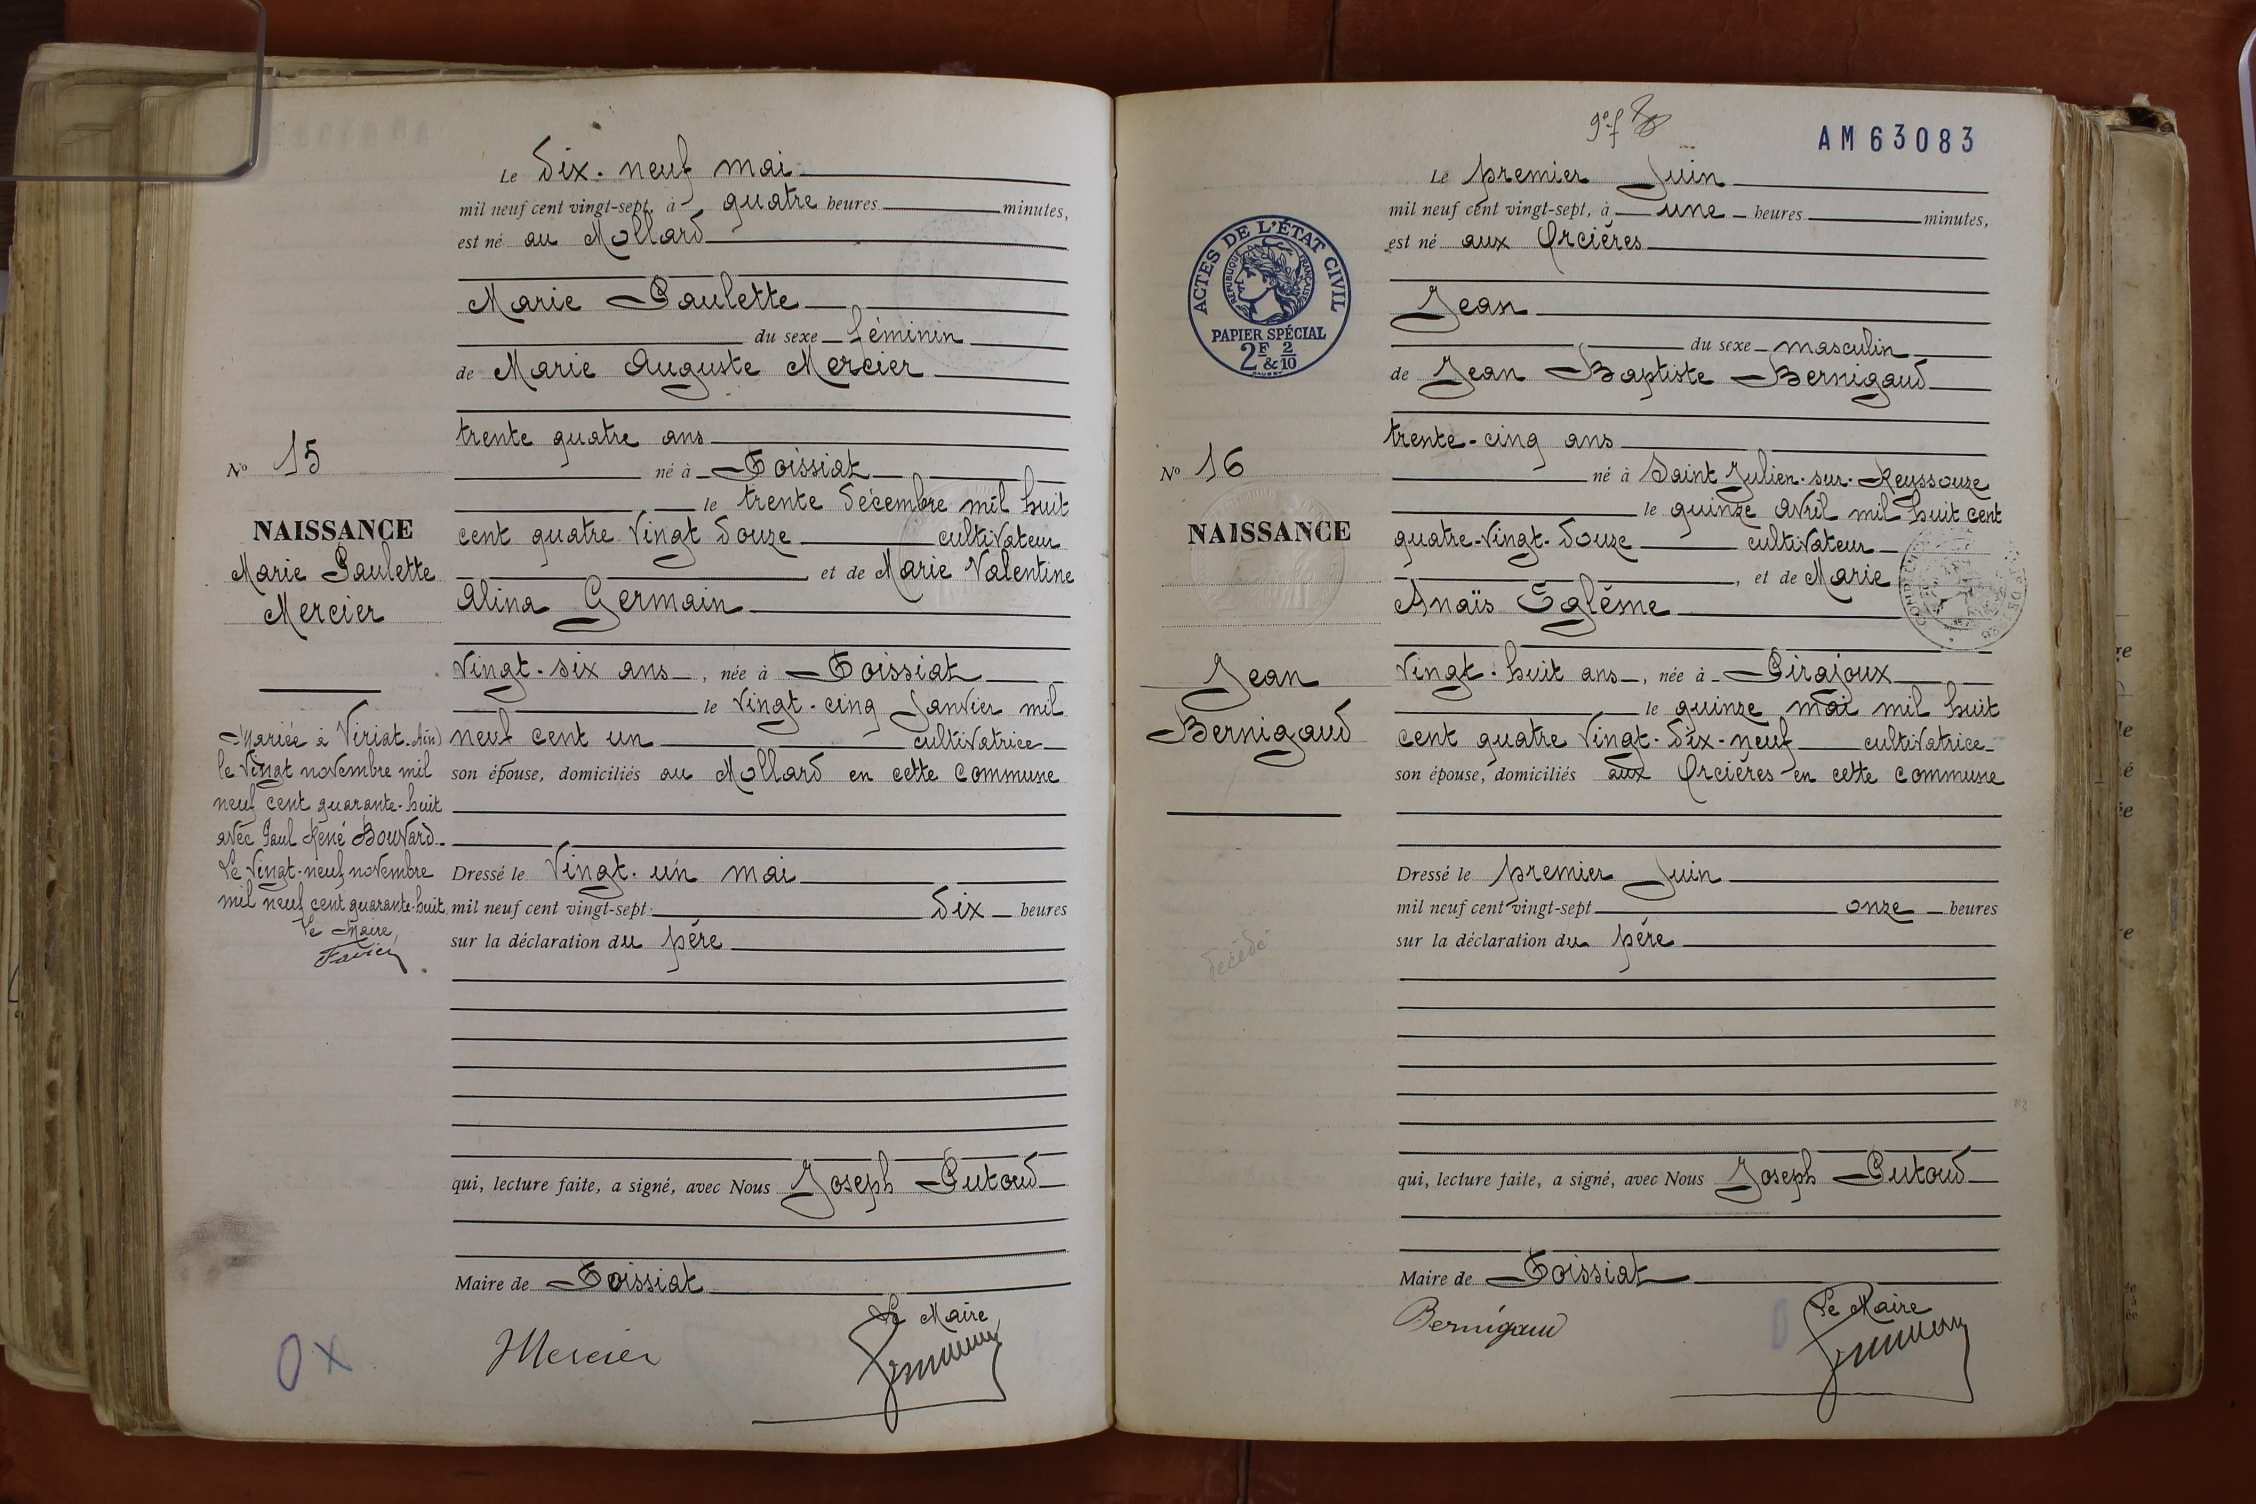 Le dix-neuf mai
mil neuf cent vingt-sept, à quatre heures minutes,
est né au Mollard
Marie Paulette
du sexe féminin
de Marie Auguste Mercier
trente quatre ans
N° 15
né à Foissiat
le trente décembre mil huit
NAISSANCE
cent quatre vingt douze cultivateur
Marie Paulette
et de Marie Valentine
Mercier
Alina Germain
vingt-six ans, née à Foissiat
le vingt-cinq Janvier mil
neuf cent un cultivatrice
son épouse, domiciliés au Mollard en cette commune
Mariée à Viriat (Ain)
le vingt novembre mil
neuf cent quarante-huit
avec Paul René Bouvard.
Le vingt-neuf novembre
mil neuf cent quarante-huit
Le Maire,
Dressé le vingt-un mai
mil neuf cent vingt-sept dix heures
sur la déclaration du père
qui, lecture faite, a signé, avec Nous Joseph Putoud
Maire de Foissiat
Le Maire
Mercier
O X
AM 63083
Le premier Juin
mil neuf cent vingt-sept, à une heures minutes,
est né aux Orcières
ACTES DE L'ÉTAT CIVIL
RÉPUBLIQUE FRANÇAISE
PAPIER SPÉCIAL
2F & 2/10
Jean
du sexe masculin
de Jean Baptiste Bernigaud
trente-cinq ans
N° 16
né à Saint Julien-sur-Reyssouze
le quinze avril mil huit cent
NAISSANCE
quatre-vingt-douze cultivateur
, et de Marie
Anaïs Eglême
Jean
Bernigaud
vingt-huit ans, née à Pirajoux
le quinze mai mil huit
cent quatre vingt-dix-neuf cultivatrice
son épouse, domiciliés aux Orcières en cette commune
Dressé le premier Juin
mil neuf cent vingt-sept onze heures
sur la déclaration du père
décédé
qui, lecture faite, a signé, avec Nous Joseph Putoud
Maire de Foissiat
Le Maire
Bernigaud